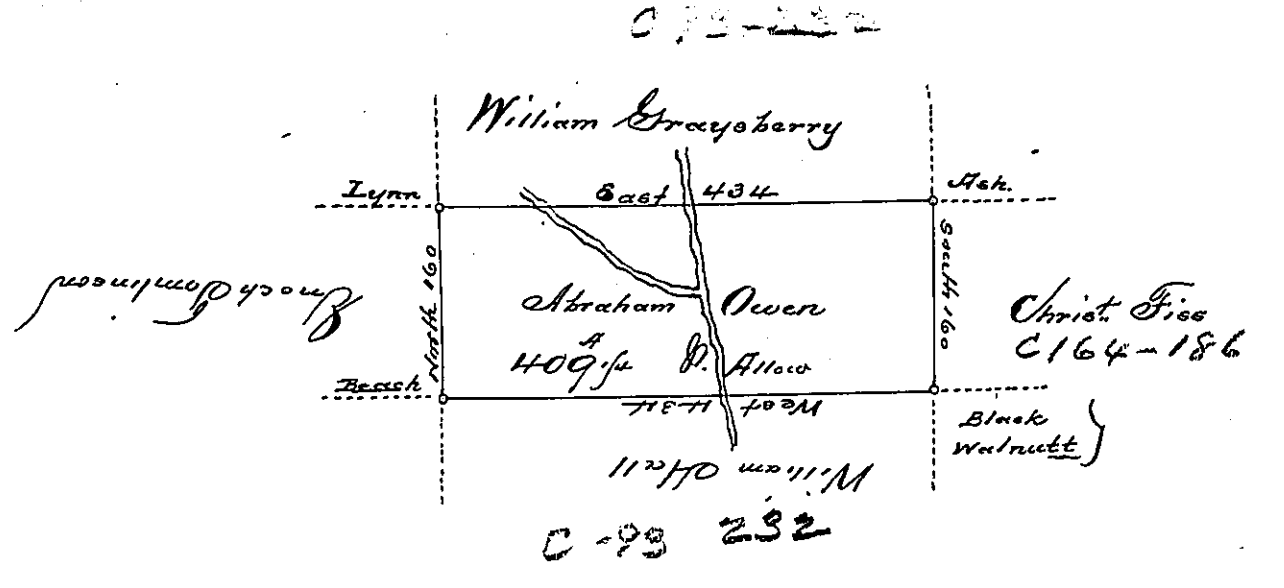 William Graysberry
Lynn
East 434
Ash.
North 160
South 160
Enoch Tomlinson
Abraham Owen
409 A ¼ & Allow
Christ. Fiss
C 164-186
Beach
West 434
Black
Walnutt
William Hall
C-93 232